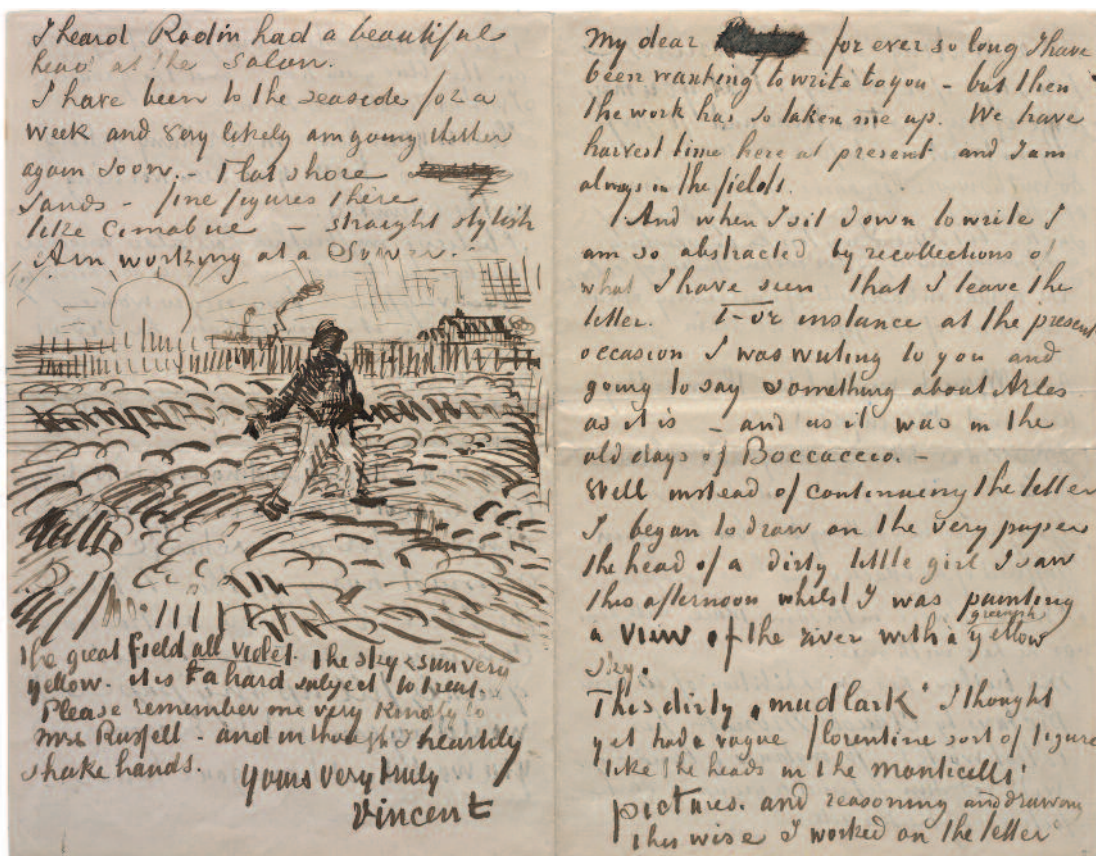 I heard Rodin had a beautiful
head at the Salon.
I have been to the seaside for a
week and very likely am going thither
again soon. - Flat shore
sands - fine figures there
like Cimabue - straight stylish
Am working at a Sower.
the great field all violet. the sky & sun very
yellow. it is a hard subject to treat.
Please remember me very kindly to
Mrs Russell - and in thought I heartily
shake hands.
Yours very truly
Vincent
My dear for ever so long I have
been wanting to write to you - but then
the work has so taken me up. We have
harvest time here at present and I am
always in the fields.
And when I sit down to write I
am so abstracted by recollections of
what I have seen that I leave the
letter. For instance at the present
occasion I was writing to you and
going to say something about Arles
as it is - and as it was in the
old days of Boccaccio.
Well instead of continuing the letter
I began to draw on the very paper
the head of a dirty little girl I saw
this afternoon whilst I was painting
a view of the river with a greenish yellow
sky.
This dirty „mudlark" I thought
yet had a vague florentine sort of figure
like the heads in the monticelli
pictures. and reasoning and drawing
this wise I worked on the letter